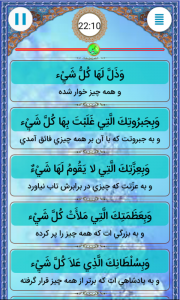 22:10
وَذَلَّ لَهَا كُلُّ شَيْءٍ
و همه چیز خوار شده
وَبِجَبَرُوتِكَ الَّتِي غَلَبْتَ بِهَا كُلَّ شَيْءٍ
و به جبروتت که با آن بر همه چیزي فائق آمدي
وَبِعِزَّتِكَ الَّتِي لا يَقُومُ لَهَا شَيْءٌ
و به عزّتت که چیزي در برابرش تاب نیاورد
وَبِعَظَمَتِكَ الَّتِي مَلأَتْ كُلَّ شَيْءٍ
و به بزرگی ات که همه چیز را پر کرده
وَبِسُلْطَانِكَ الَّذِي عَلاَ كُلَّ شَيْءٍ
و به پادشاهی ات که برتر از همه چیز قرار گرفته